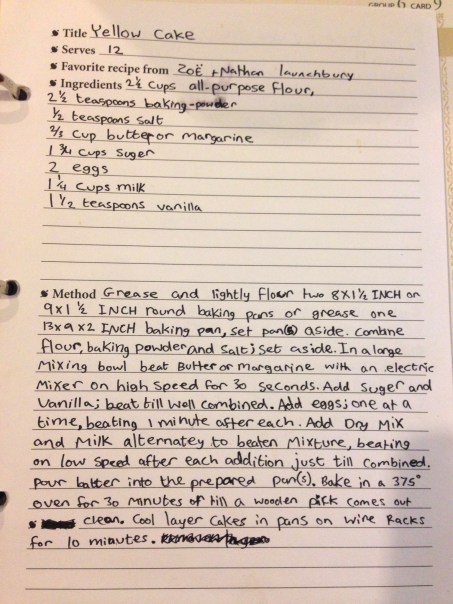 GROUP 6 CARD 9
Title Yellow Cake
Serves 12
Favorite recipe from Zoë + Nathan launchbury
Ingredients 2½ cups all-purpose flour,
2½ teaspoons baking-powder
½ teaspoons salt
⅔ cup butter or margarine
1 ¾ cups suger
2 eggs
1¼ cups milk
1 ½ teaspoons vanilla
Method Grease and lightly flour two 8X1½ INCH or
9X1 ½ INCH round baking pans or grease one
13x9x2 INCH baking pan, set pan(s) aside. Combine
flour, baking powder and salt; set aside. In a large
mixing bowl beat butter or margarine with an electric
mixer on high speed for 30 seconds. Add suger and
vanilla; beat till well combined. Add eggs; one at a
time, beating 1 minute after each. Add Dry Mix
and milk alternatey to beaten mixture, beating
on low speed after each addition just till combined.
Pour batter into the prepared pan(s). Bake in a 375°
oven for 30 minutes or till a wooden pick comes out
clean. Cool layer cakes in pans on wire Racks
for 10 minutes.